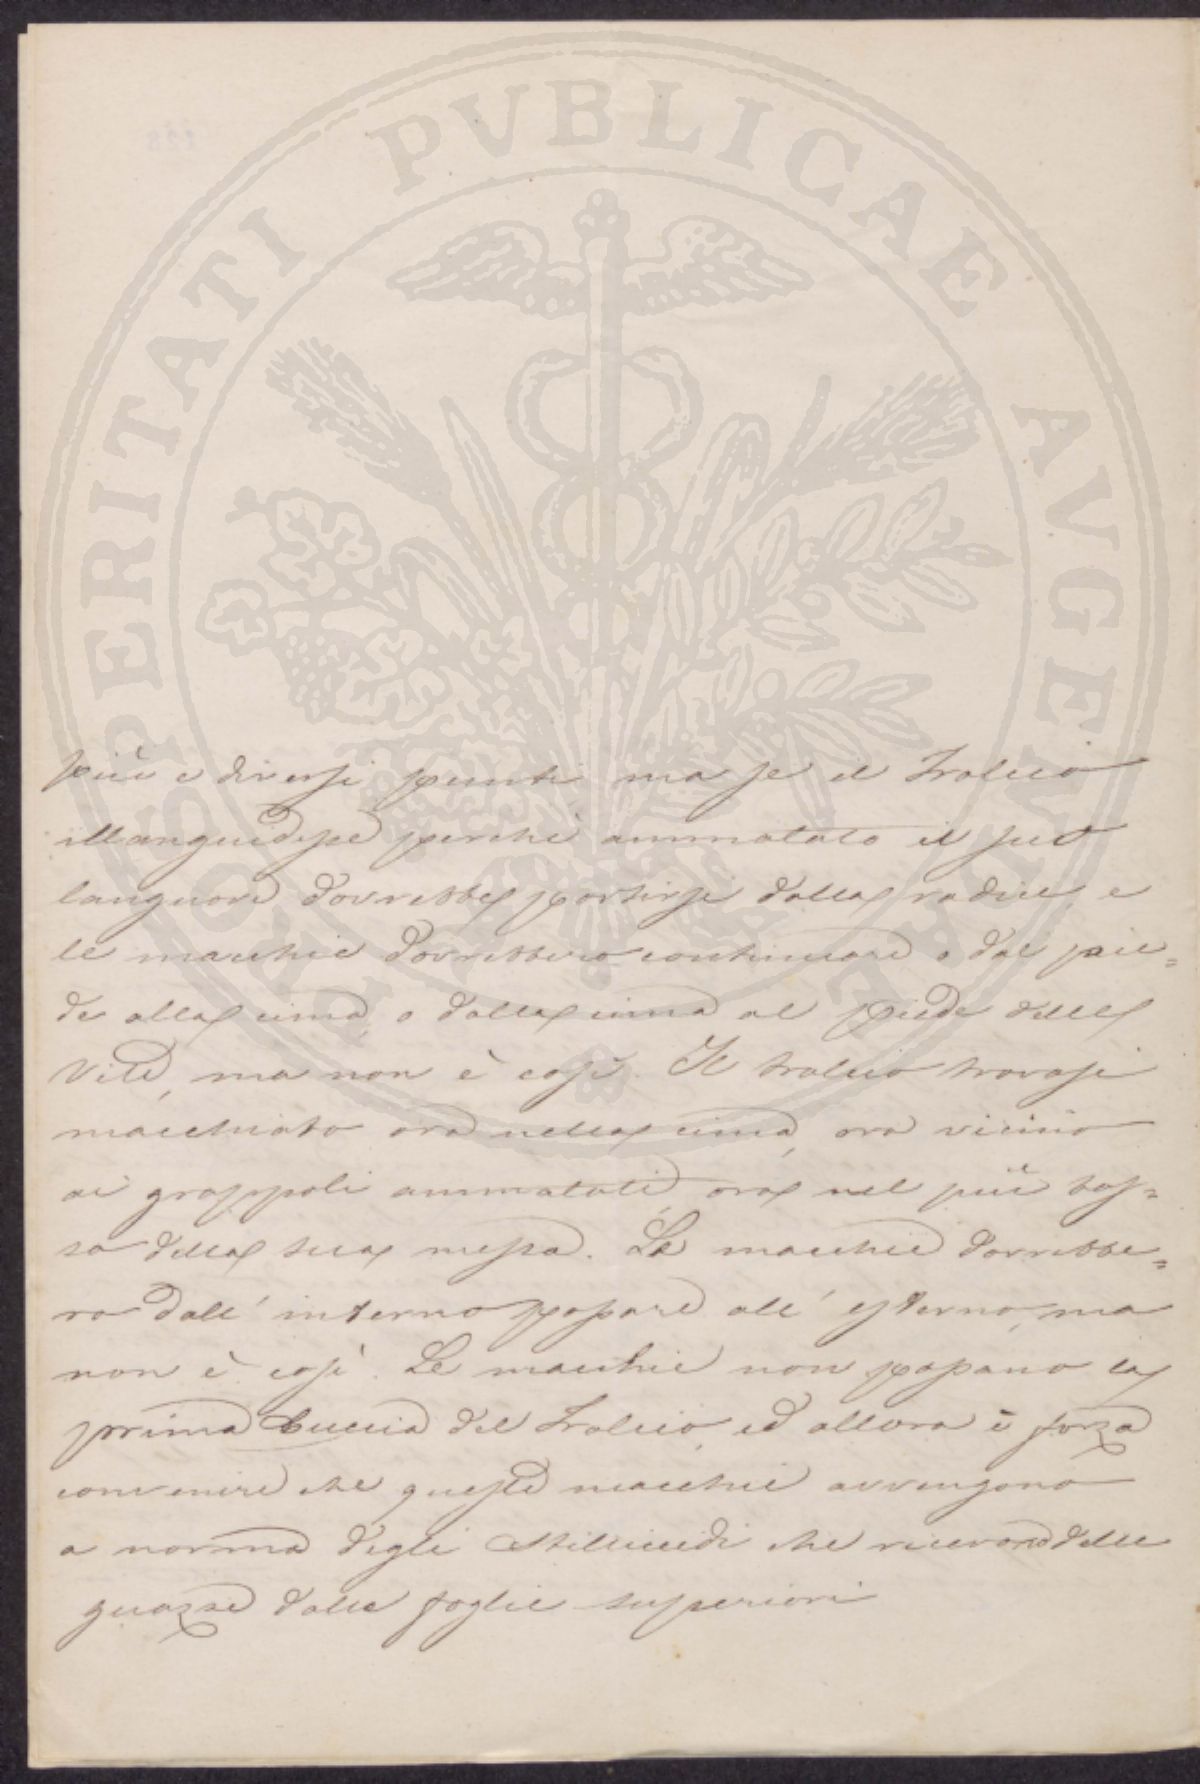 PROSPERITATI PVBLICAE AVGENDAE
più e diversi punti ma se il Tralcio
illanguidisse perchè ammalato il suo
languore dovrebbe partirsi dalla radice e
le macchie dovrebbero continuare o dal pie=
de alla cima, o dalla cima al piede delle
Vite, ma non è così. Il tralcio trovasi
macchiato ora nella cima, ora vicino
ai grappoli ammalati, ora nel più bas=
so della sua messa. Le macchie dovrebbe=
ro dall' interno passare all' esterno, ma
non è così. Le macchie non passano la
prima buccia del Tralcio, ed allora è forza
convenire che queste macchie avvengono
a norma degli stillicidi che ricevono delle
guazze dalle foglie superiori